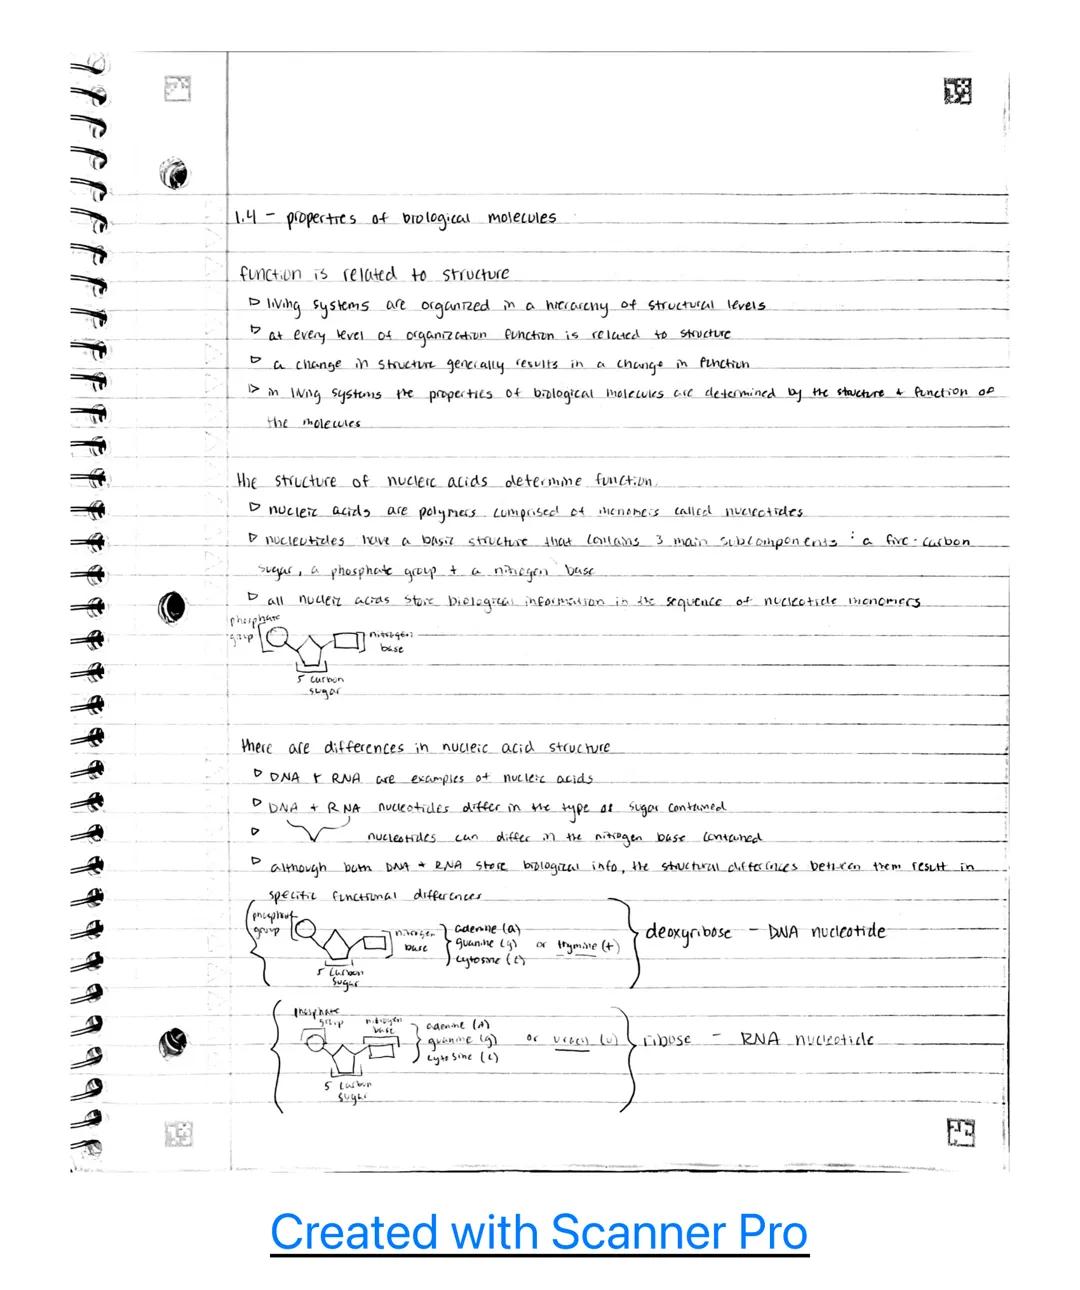 1.4 - properties of biological molecules
function is related to structure
▷ living systems are organized in a hierarchy of structural levels
▷ at every level of organization function is related to structure
▷ a change in structure generally results in a change in function
▷ in living systems the properties of biological molecules are determined by the structure + function of
the molecules
the structure of nucleic acids determine function.
▷ nucleic acids are polymers comprised of monomers called nucleotides
▷ nucleotides have a basic structure that contains 3 main subcomponents : a five-carbon
sugar, a phosphate group + a nitrogen base
▷ all nucleic acids store biological information in the sequence of nucleotide monomers
phosphate
group
nitrogen
base
5 carbon
sugar
there are differences in nucleic acid structure
▷ DNA + RNA are examples of nucleic acids
▷ DNA + RNA nucleotides differ in the type of sugar contained
▷ nucleotides can differ in the nitrogen base contained
▷ although both DNA + RNA store biological info, the structural differences between them result in
specific functional differences
phosphate
group
nitrogen
base
5 carbon
sugar
adenine (a)
guanine (g) or thymine (t)
cytosine (c)
deoxyribose - DNA nucleotide
phosphate
group
nitrogen
base
5 carbon
sugar
adenine (a)
guanine (g) or uracil (u)
cytosine (c)
ribose - RNA nucleotide
Created with Scanner Pro